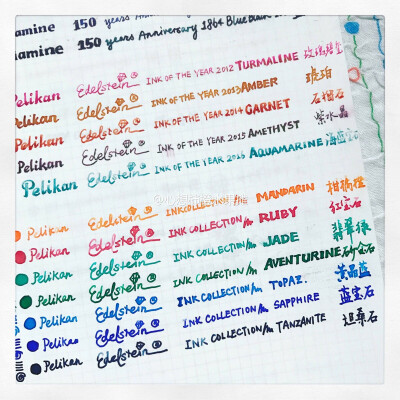 amine 150 years Anniversary 1864 Blue
namine 150 years Anniversary 1864 Blue Black
Pelikan Edelstein INK OF THE YEAR 2012 TURMALINE 玫瑰碧玺
Pelikan Edelstein INK OF THE YEAR 2013 AMBER 琥珀
Pelikan Edelstein INK OF THE YEAR 2014 GARNET 石榴石
Pelikan Edelstein INK OF THE YEAR 2015 AMETHYST 紫水晶
Pelikan Edelstein INK OF THE YEAR 2016 AQUAMARINE 海蓝宝石
Pelikan Edelstein INK COLLECTION/In MANDARIN 柑橘橙
Pelikan Edelstein INK COLLECTION/In RUBY 红宝石
Pelikan Edelstein INK COLLECTION/In JADE 翡翠绿
Pelikan Edelstein INK COLLECTION/In AVENTURINE 砂金石
Pelikan Edelstein INK COLLECTION/In TOPAZ. 黄晶蓝
Pelikan Edelstein INK COLLECTION/In SAPPHIRE 蓝宝石
Pelikan Edelstein INK COLLECTION/In TANZANITE 坦桑石